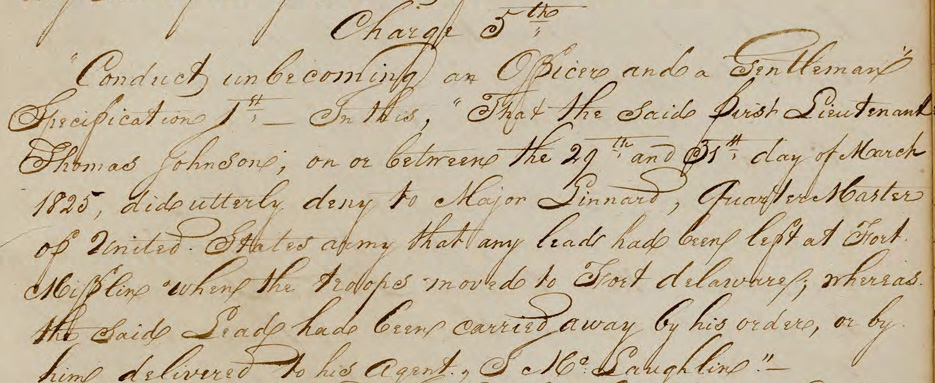 Charge 5th
"Conduct unbecoming an Officer and a Gentleman"
Specification 1st — In this, "That the said first Lieutenant
Thomas Johnson, on or between the 29th and 31st day of March
1825, did utterly deny to Major Linnard, Quarter Master
of United States army that any lead had been left at Fort
Mifflin when the troops moved to Fort delaware; whereas
the said Lead had been carried away by his order, or by
him delivered to his Agent, S Mc Laughlin." —